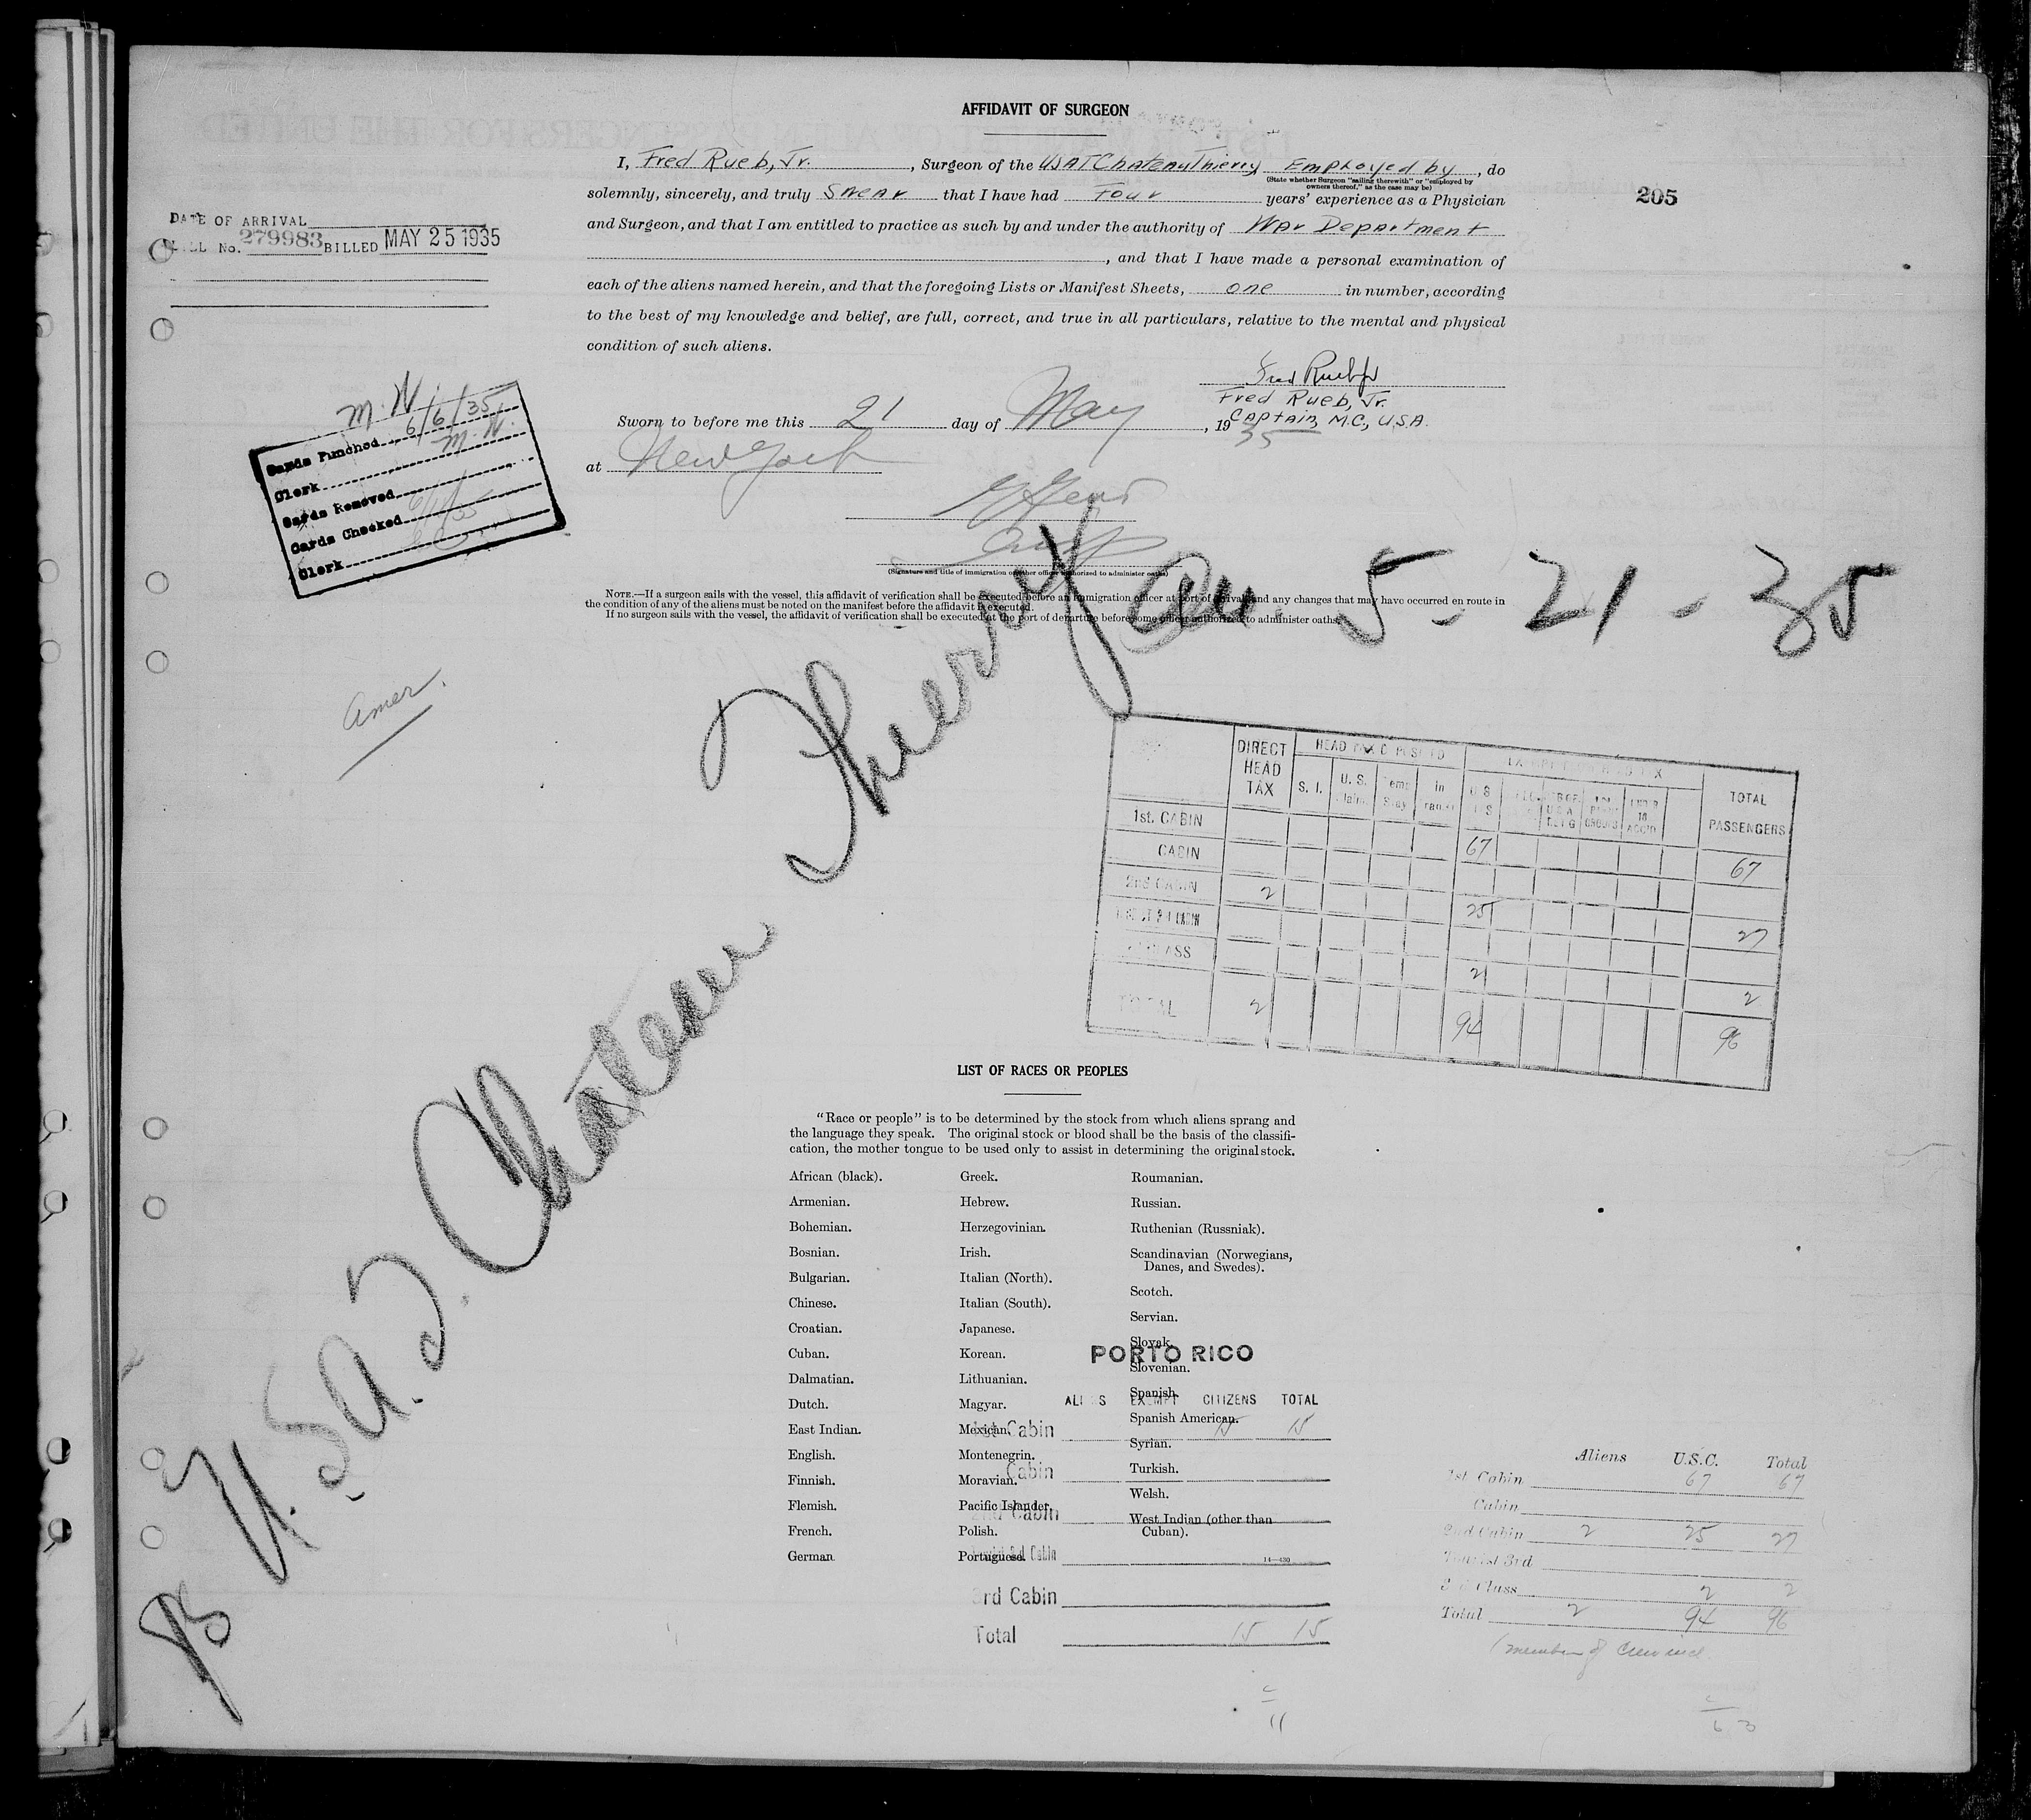 AFFIDAVIT OF SURGEON
I, Fred Rueb, Jr. , Surgeon of the USAT Chateau Thierry Employed by , do
(State whether Surgeon "sailing therewith" or "employed by
owners thereof," as the case may be)
solemnly, sincerely, and truly Swear that I have had Four years' experience as a Physician
and Surgeon, and that I am entitled to practice as such by and under the authority of War Department
, and that I have made a personal examination of
each of the aliens named herein, and that the foregoing Lists or Manifest Sheets, one in number, according
to the best of my knowledge and belief, are full, correct, and true in all particulars, relative to the mental and physical
condition of such aliens.
205
DATE OF ARRIVAL
BILL No. 279983 BILLED MAY 25 1935
Fred Rueb Jr
Fred Rueb, Jr.
Captain, M.C., U.S.A.
Sworn to before me this 21 day of May , 19 35
at New York
(Signature and title of immigration or other officer authorized to administer oaths)
M. N.
Cards Punched 6/6/35
Clerk M. N.
Cards Removed
Cards Checked 6/11/35
Clerk
NOTE.—If a surgeon sails with the vessel, this affidavit of verification shall be executed before an immigration officer at port of arrival and any changes that may have occurred en route in
the condition of any of the aliens must be noted on the manifest before the affidavit is executed.
If no surgeon sails with the vessel, the affidavit of verification shall be executed at the port of departure before some officer authorized to administer oaths.
amer.
U.S.A.T. Chateau Thierry
5-21-35
DIRECT HEAD TAX
HEAD TAX DEPOSITED
TOTAL PASSENGERS
S. I. U. S. Claim Temp Stay in Transit U S
1st. CABIN 67 67
CABIN
2nd CABIN 2 25 27
2 2
TOTAL 2 94 96
LIST OF RACES OR PEOPLES
"Race or people" is to be determined by the stock from which aliens sprang and
the language they speak. The original stock or blood shall be the basis of the classifi-
cation, the mother tongue to be used only to assist in determining the original stock.
African (black).
Armenian.
Bohemian.
Bosnian.
Bulgarian.
Chinese.
Croatian.
Cuban.
Dalmatian.
Dutch.
East Indian.
English.
Finnish.
Flemish.
French.
German.
Greek.
Hebrew.
Herzegovinian.
Irish.
Italian (North).
Italian (South).
Japanese.
Korean.
Lithuanian.
Magyar.
Mexican.
Montenegrin.
Moravian.
Pacific Islander.
Polish.
Portuguese.
Roumanian.
Russian.
Ruthenian (Russniak).
Scandinavian (Norwegians,
Danes, and Swedes).
Scotch.
Servian.
Slovak.
Slovenian.
Spanish.
Spanish American.
Syrian.
Turkish.
Welsh.
West Indian (other than
Cuban).
14—430
PORTO RICO
ALIENS EXEMPT CITIZENS TOTAL
1st Cabin 15 15
Cabin
2nd Cabin
3rd Cabin
Total 15 15
Aliens U.S.C. Total
1st Cabin 67 67
Cabin
2nd Cabin 2 25 27
Tourist 3rd
3rd Class 2 2
Total 2 94 96